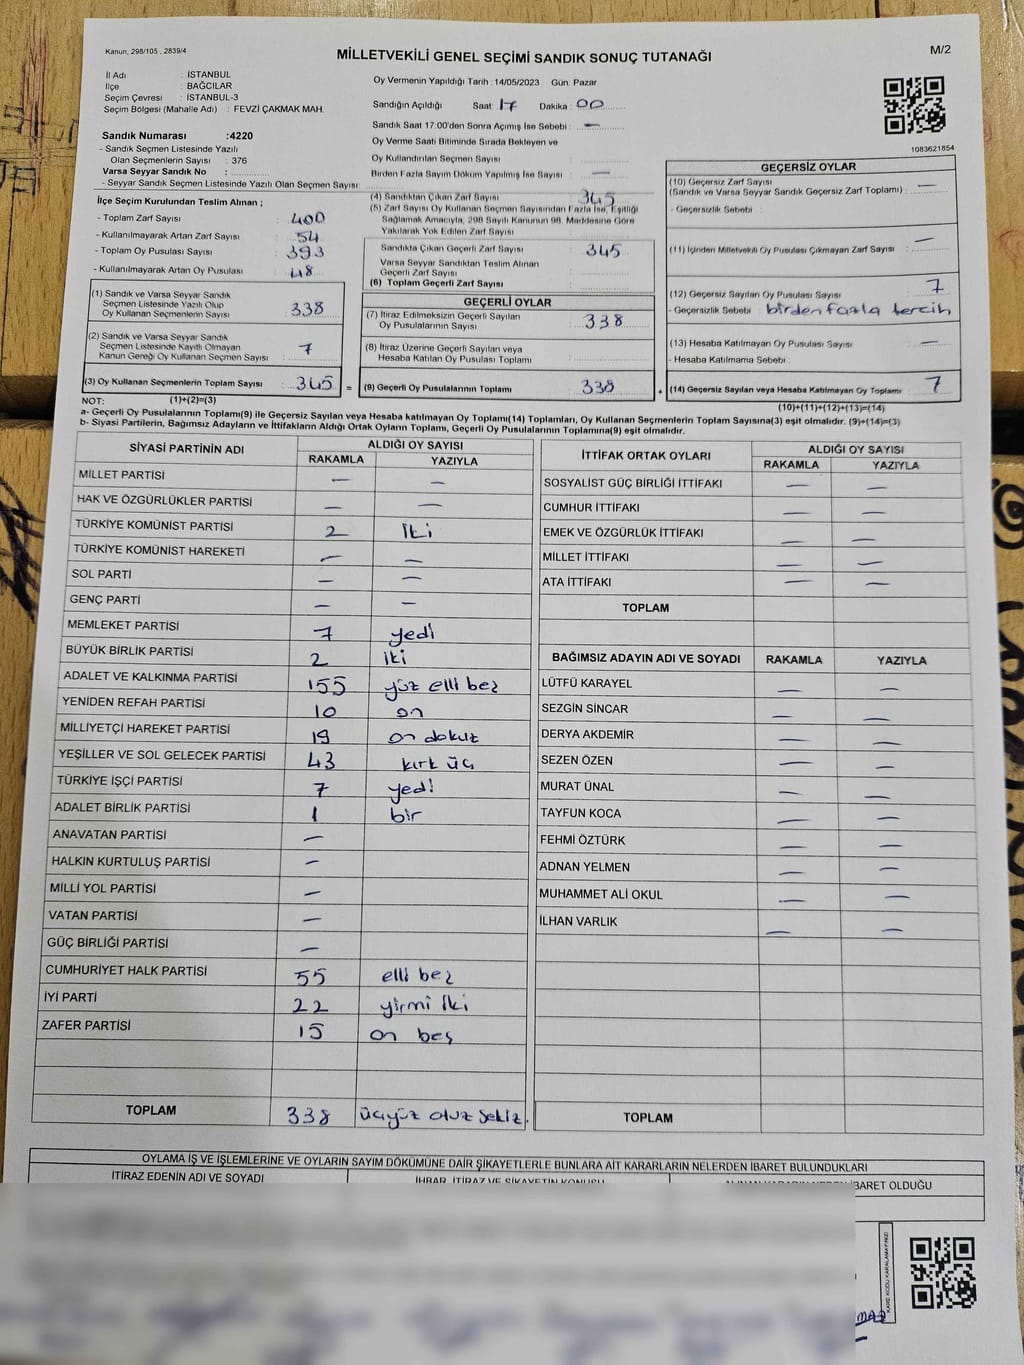 Kanun; 298/105 , 2839/4
MİLLETVEKİLİ GENEL SEÇİMİ SANDIK SONUÇ TUTANAĞI
M/2
İl Adı : İSTANBUL
İlçe : BAĞCILAR
Seçim Çevresi : İSTANBUL-3
Seçim Bölgesi (Mahalle Adı) : FEVZİ ÇAKMAK MAH.
Oy Vermenin Yapıldığı Tarih : 14/05/2023 Gün: Pazar
Sandığın Açıldığı Saat: 17 Dakika : 00
Sandık Saat 17:00'den Sonra Açımış İse Sebebi : —
Oy Verme Saati Bitiminde Sırada Bekleyen ve
Oy Kullandırılan Seçmen Sayısı :
Birden Fazla Sayım Döküm Yapılmış İse Sayısı : —
1083621854
Sandık Numarası :4220
- Sandık Seçmen Listesinde Yazılı
Olan Seçmenlerin Sayısı : 376
Varsa Seyyar Sandık No :
- Seyyar Sandık Seçmen Listesinde Yazılı Olan Seçmen Sayısı:
İlçe Seçim Kurulundan Teslim Alınan ;
- Toplam Zarf Sayısı : 400
- Kullanılmayarak Artan Zarf Sayısı : 54
- Toplam Oy Pusulası : 393
- Kullanılmayarak Artan Oy Pusulası : 48
(1) Sandık ve Varsa Seyyar Sandık
Seçmen Listesinde Yazılı Olup
Oy Kullanan Seçmenlerin Sayısı : 338
(2) Sandık ve Varsa Seyyar Sandık
Seçmen Listesinde Kayıtlı Olmayan
Kanun Gereği Oy Kullanan Seçmen Sayısı : 7
(3) Oy Kullanan Seçmenlerin Toplam Sayısı : 345 =
(4) Sandıktan Çıkan Zarf Sayısı : 345
(5) Zarf Sayısı Oy Kullanan Seçmen Sayısından Fazla İse, Eşitliği
Sağlamak Amacıyla, 298 Sayılı Kanunun 98. Maddesine Göre
Yakılarak Yok Edilen Zarf Sayısı :
Sandıkta Çıkan Geçerli Zarf Sayısı : 345
Varsa Seyyar Sandıktan Teslim Alınan
Geçerli Zarf Sayısı :
(6) Toplam Geçerli Zarf Sayısı :
GEÇERLİ OYLAR
(7) İtiraz Edilmeksizin Geçerli Sayılan
Oy Pusulalarının Sayısı : 338
(8) İtiraz Üzerine Geçerli Sayılan veya
Hesaba Katılan Oy Pusulası Toplamı :
(9) Geçerli Oy Pusulalarının Toplamı : 338 +
GEÇERSİZ OYLAR
(10) Geçersiz Zarf Sayısı
(Sandık ve Varsa Seyyar Sandık Geçersiz Zarf Toplamı) : —
- Geçersizlik Sebebi :
(11) İçinden Milletvekili Oy Pusulası Çıkmayan Zarf Sayısı : —
(12) Geçersiz Sayılan Oy Pusulası Sayısı : 7
- Geçersizlik Sebebi : birden fazla tercih
(13) Hesaba Katılmayan Oy Pusulası Sayısı : —
- Hesaba Katılmama Sebebi :
(14) Geçersiz Sayılan veya Hesaba Katılmayan Oy Toplamı : 7
NOT: (1)+(2)=(3)
(10)+(11)+(12)+(13)=(14)
a- Geçerli Oy Pusulalarının Toplamı(9) ile Geçersiz Sayılan veya Hesaba katılmayan Oy Toplamı(14) Toplamları, Oy Kullanan Seçmenlerin Toplam Sayısına(3) eşit olmalıdır. (9)+(14)=(3)
b- Siyasi Partilerin, Bağımsız Adayların ve İttifakların Aldığı Ortak Oyların Toplamı, Geçerli Oy Pusulalarının Toplamına(9) eşit olmalıdır.
SİYASİ PARTİNİN ADI ALDIĞI OY SAYISI
RAKAMLA YAZIYLA
MİLLET PARTİSİ — —
HAK VE ÖZGÜRLÜKLER PARTİSİ — —
TÜRKİYE KOMÜNİST PARTİSİ 2 iki
TÜRKİYE KOMÜNİST HAREKETİ — —
SOL PARTİ — —
GENÇ PARTİ — —
MEMLEKET PARTİSİ 7 yedi
BÜYÜK BİRLİK PARTİSİ 2 iki
ADALET VE KALKINMA PARTİSİ 155 yüz elli beş
YENİDEN REFAH PARTİSİ 10 on
MİLLİYETÇİ HAREKET PARTİSİ 19 on dokuz
YEŞİLLER VE SOL GELECEK PARTİSİ 43 kırk üç
TÜRKİYE İŞÇİ PARTİSİ 7 yedi
ADALET BİRLİK PARTİSİ 1 bir
ANAVATAN PARTİSİ —
HALKIN KURTULUŞ PARTİSİ —
MİLLİ YOL PARTİSİ —
VATAN PARTİSİ —
GÜÇ BİRLİĞİ PARTİSİ —
CUMHURİYET HALK PARTİSİ 55 elli beş
İYİ PARTİ 22 yirmi iki
ZAFER PARTİSİ 15 on beş
TOPLAM 338 üçyüz otuz sekiz.
İTTİFAK ORTAK OYLARI ALDIĞI OY SAYISI
RAKAMLA YAZIYLA
SOSYALİST GÜÇ BİRLİĞİ İTTİFAKI — —
CUMHUR İTTİFAKI — —
EMEK VE ÖZGÜRLÜK İTTİFAKI — —
MİLLET İTTİFAKI — —
ATA İTTİFAKI — —
TOPLAM
BAĞIMSIZ ADAYIN ADI VE SOYADI RAKAMLA YAZIYLA
LÜTFÜ KARAYEL — —
SEZGİN SİNCAR — —
DERYA AKDEMİR — —
SEZEN ÖZEN — —
MURAT ÜNAL — —
TAYFUN KOCA — —
FEHMİ ÖZTÜRK — —
ADNAN YELMEN — —
MUHAMMET ALİ OKUL — —
İLHAN VARLIK — —
TOPLAM
OYLAMA İŞ VE İŞLEMLERİNE VE OYLARIN SAYIM DÖKÜMÜNE DAİR ŞİKAYETLERLE BUNLARA AİT KARARLARIN NELERDEN İBARET BULUNDUKLARI
İTİRAZ EDENİN ADI VE SOYADI İHBAR, İTİRAZ VE ŞİKAYETİN KONUSU İBARET OLDUĞU
KARE KODU KARALAMAYINIZ!